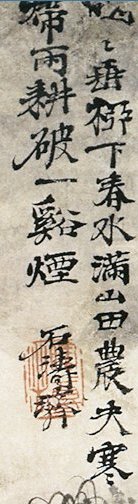 垂楊下春水滿山田農夫寒
帶雨耕破一谿煙
石濤